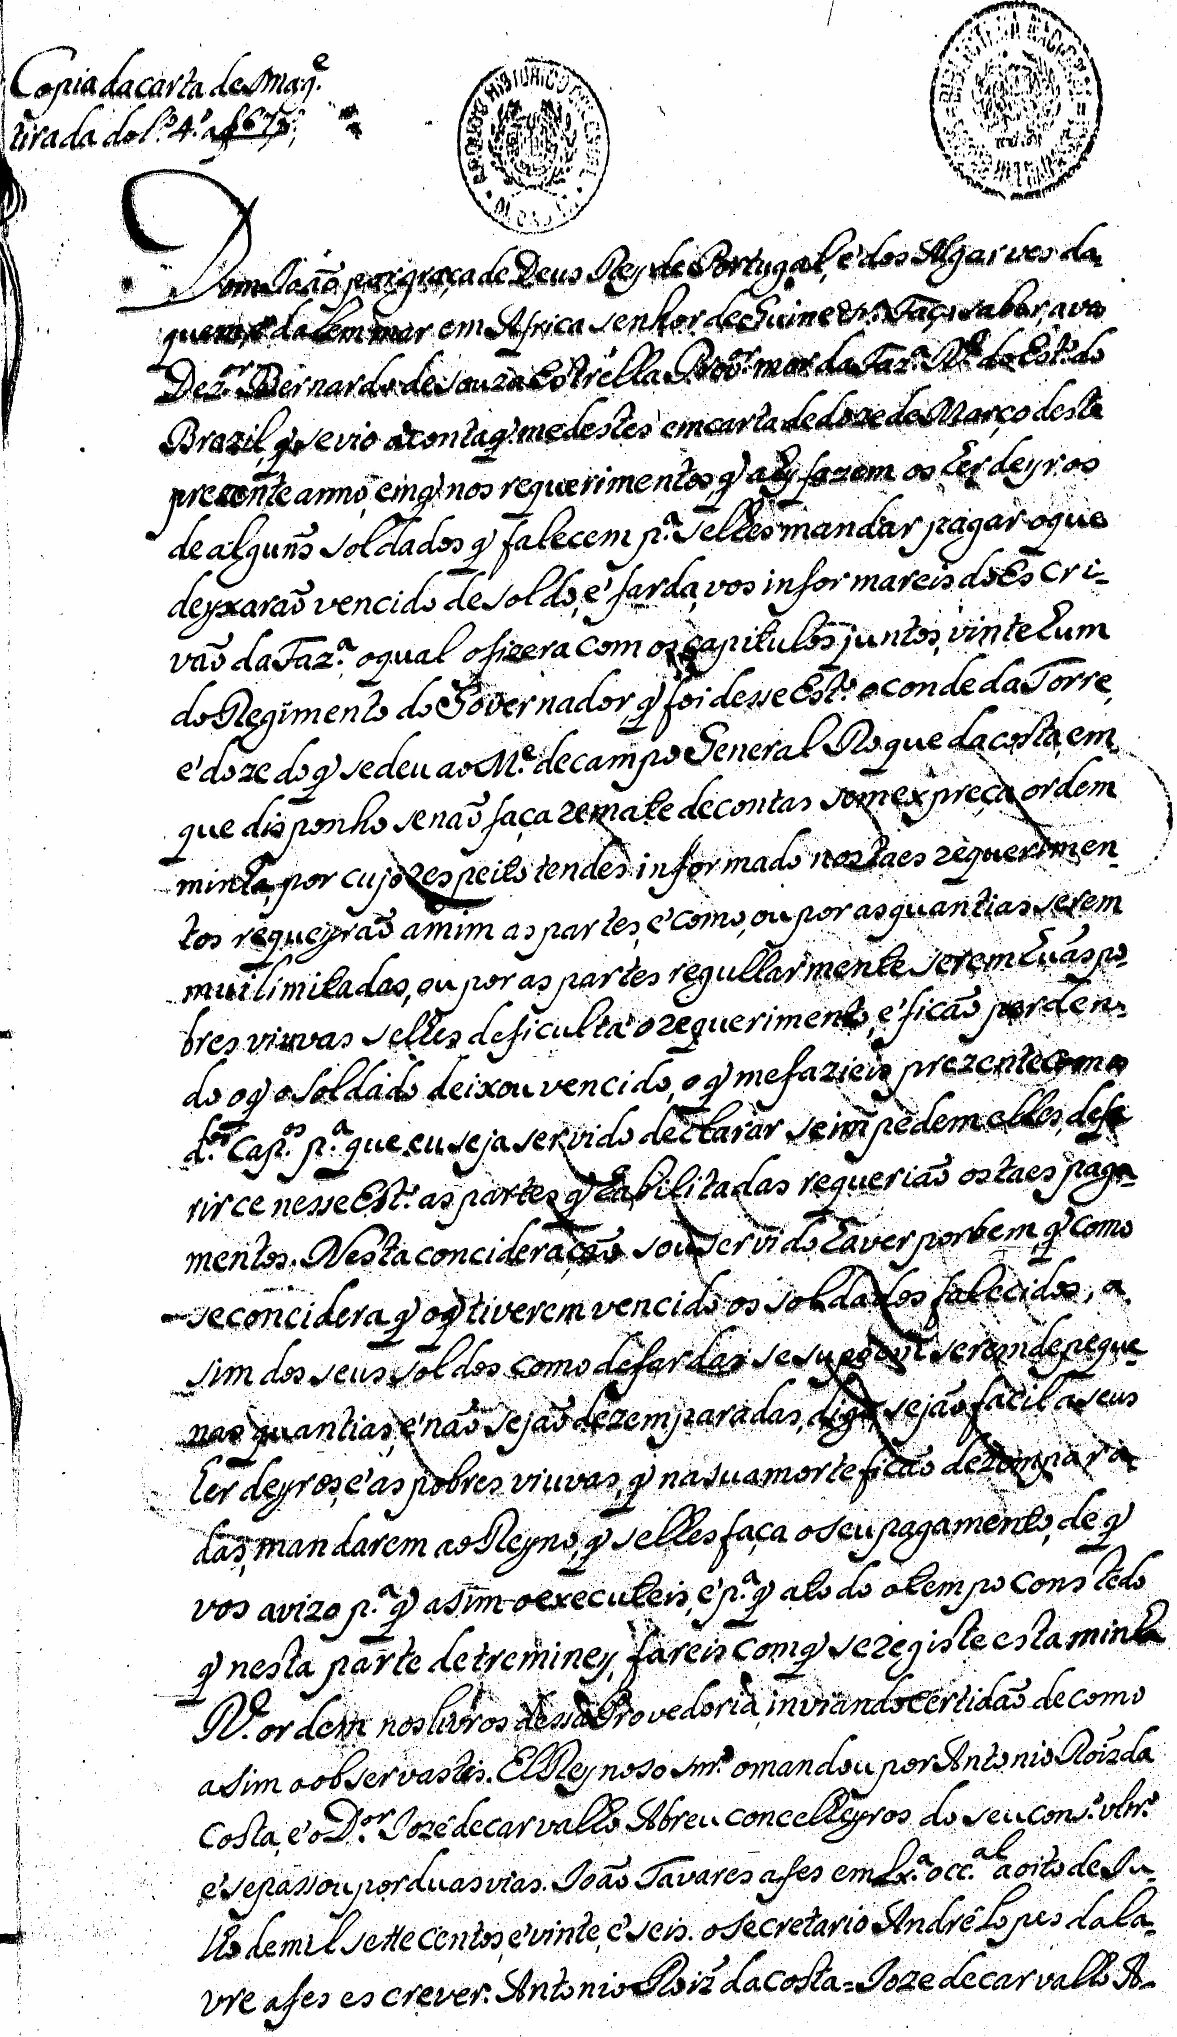 Copia da carta de S mag.e
tirada do l.o 4.o a f 675,
ARQUIVO HISTORICO COLONIAL
LISBOA
BIBLIOTECA NACIONAL
Dom João por graça de Deus Rey de Portugal, e dos Algarves da-
quem, e dalem mar em Africa senhor de Guine &.a Faço saber, avos
Dez.or Bernardo de souza Estrella Prov.or mor da Faz.a R.l do Est.o do
Brazil, q̃ se vio a conta q̃ me destes em carta de doze de Março deste
prezente anno, em q̃ nos requerimentos, q̃ ahy fazem os herdeyros
de alguñs soldados q̃ falecem p.a selhes mandar pagar o que
deyxarão vencido de soldo, e farda, vos informareis do Escri-
vão da Faz.a o qual o fizera com os capitulos juntos, vinte hum
do Regimento do Governador, q̃ foi desse Est.o o conde da Torre,
e doze do q̃ se deu ao M.e de campo General Roque da costa, em
que disponho se não faça remate de contas sem expreça ordem
minha, por cujo respeito tendes informado nos taes requerimen-
tos requeyrão amim as partes, e como, ou por as quantias serem
mui limitadas, ou por as partes regullarmente serem huas po-
bres viuvas selhes deficulta o requerimento, e ficão perden-
do o q̃ o soldado deixou vencido, o q̃ me fazieis prezente com os
d.os Cap.os p.a que eu seja servido declarar se impedem elles, defe
rirce nesse Est.o as partes q̃ habilitadas requerião os taes paga-
mentos. Nesta concideração sou servido haver por bem, q̃ como
se concidera q̃ o q̃ tiverem vencido os soldados falecidos, a
sim dos seus soldos como de fardas se supoem serem de peque-
nas quantias, e não sejão dezemparadas, digo sejão facil a seus
herdeyros, e as pobres viuvas, q̃ na sua morte ficão dezempara
das, mandarem ao Reyno, q̃ selhes faça o seu pagamento, de q̃
vos avizo p.a q̃ asim o executeis, e p.a q̃ a todo o tempo conste do
q̃ nesta parte detreminey, fareis com q̃ se registe esta minha
R.l ordem nos livros dessa Provedoria, inviando certidão de como
asim o observastis. El Rey noso snr.o mandou por Antonio Roiz da
Costa, e o D.or Joze de carvalho Abreu concelheyros do seu cons.o ultr.o
e se passou por duas vias. João Tavares a fes em Lx.a occ.al a oito de Ju-
lho de mil sette centos, e vinte, e seis. o secretario André Lopes da la-
vre a fes escrever. Antonio Roiz da Costa = Joze de carvalho A-